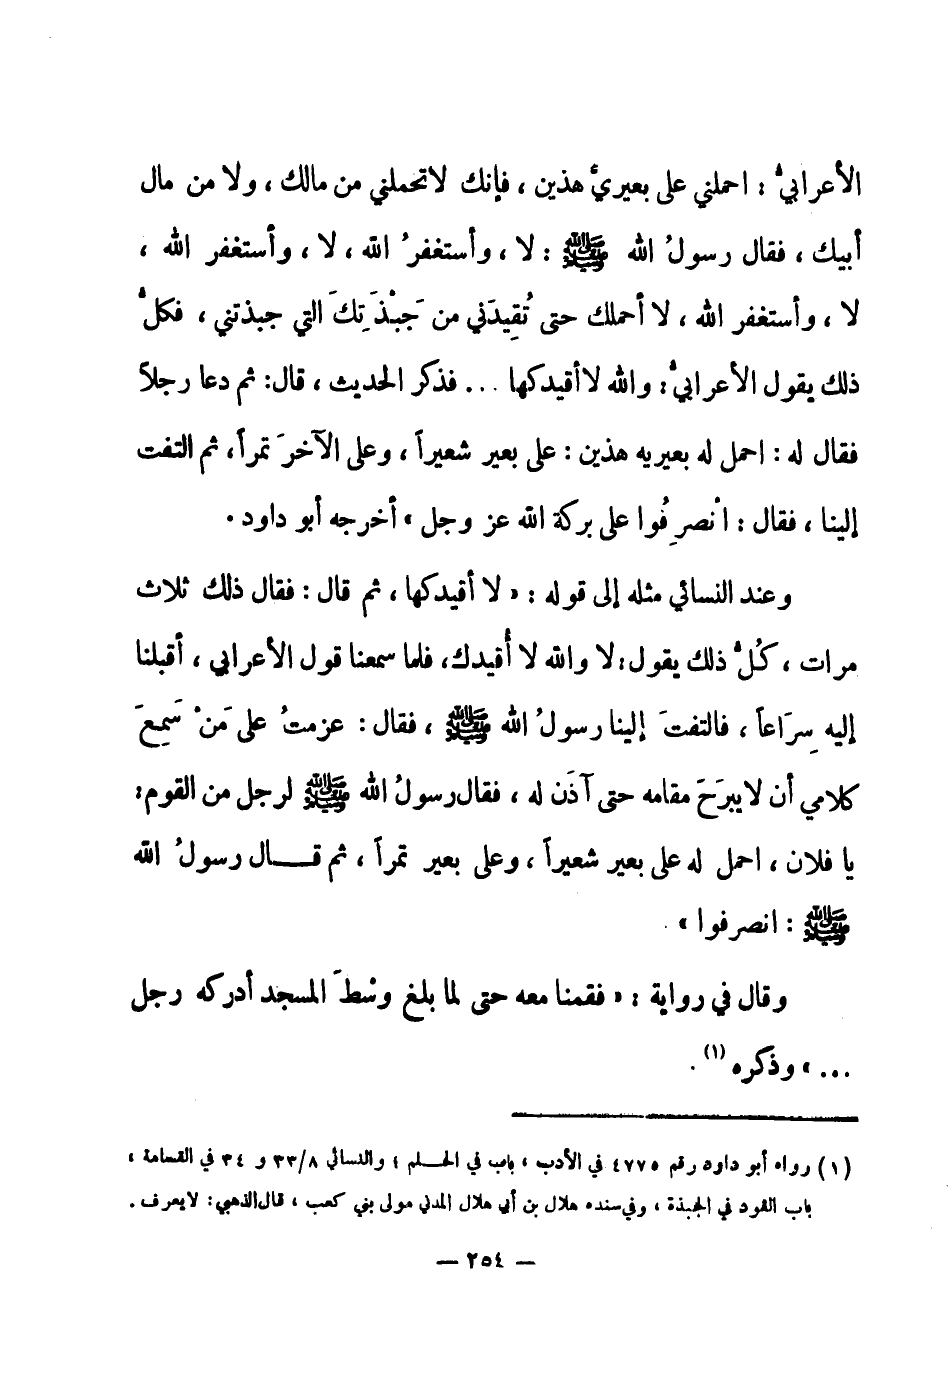 الأعرابيُّ : احملني على بعيريَّ هذين ، فإنك لاتحملني من مالك ، ولا من مال
أبيك ، فقال رسولُ الله ﷺ : لا ، وأستغفرُ الله ، لا ، وأستغفر الله ،
لا ، وأستغفر الله ، لا أحملك حتى تُقِيدَني من جَبْذَتِكَ التي جبذتني ، فكلُّ
ذلك يقول الأعرابيُّ : والله لاأقيدكها ... فذكر الحديث ، قال: ثم دعا رجلاً
فقال له : احمل له بعيريه هذين : على بعير شعيراً ، وعلى الآخرَ تمراً، ثم التفت
إلينا ، فقال : انْصرِفُوا على بركة الله عز وجل » أخرجه أبو داود .
وعند النسائي مثله إلى قوله : « لا أقيدكها ، ثم قال : فقال ذلك ثلاث
مرات ، كُلُّ ذلك يقول: لا والله لا أُقيدك، فلما سمعنا قول الأعرابي ، أقبلنا
إليه سِرَاعاً ، فالتفتَ إلينا رسولُ الله ﷺ ، فقال : عزمتُ على مَنْ سَمِعَ
كلامي أن لايبرَحَ مقامه حتى آذَن له ، فقال رسولُ الله ﷺ لرجل من القوم:
يا فلان ، احمل له على بعير شعيراً ، وعلى بعير تمراً ، ثم قـــال رسولُ الله
ﷺ : انصرفوا » .
وقال في رواية : « فقمنا معه حتى لما بلغ وسْطَ المسجد أدركه رجل
... » وذكره (١) .
(١) رواه أبو داود رقم ٤٧٧٥ في الأدب ، باب في الحـلم ؛ والنسائي ٣٣/٨ و ٣٤ في القسامة ،
باب القود في الجبذة ، وفي سنده هلال بن أبي هلال المدني مولى بني كعب ، قال الذهبي : لايعرف .
— ٢٥٤ —